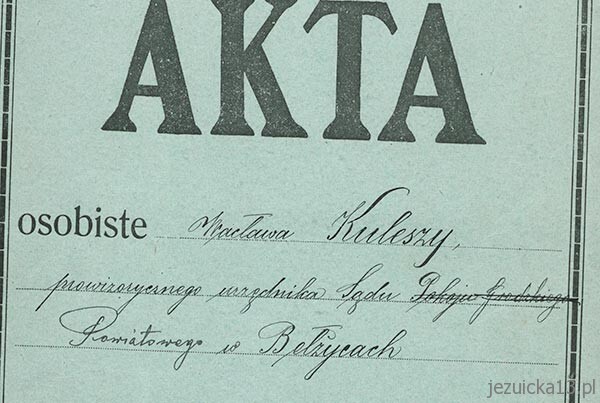 AKTA
osobiste Wacława Kuleszy,
prowizorycznego urzędnika Sądu Pokoju Grodzkiego
Powiatowego w Bełżycach
jezuicka13.pl